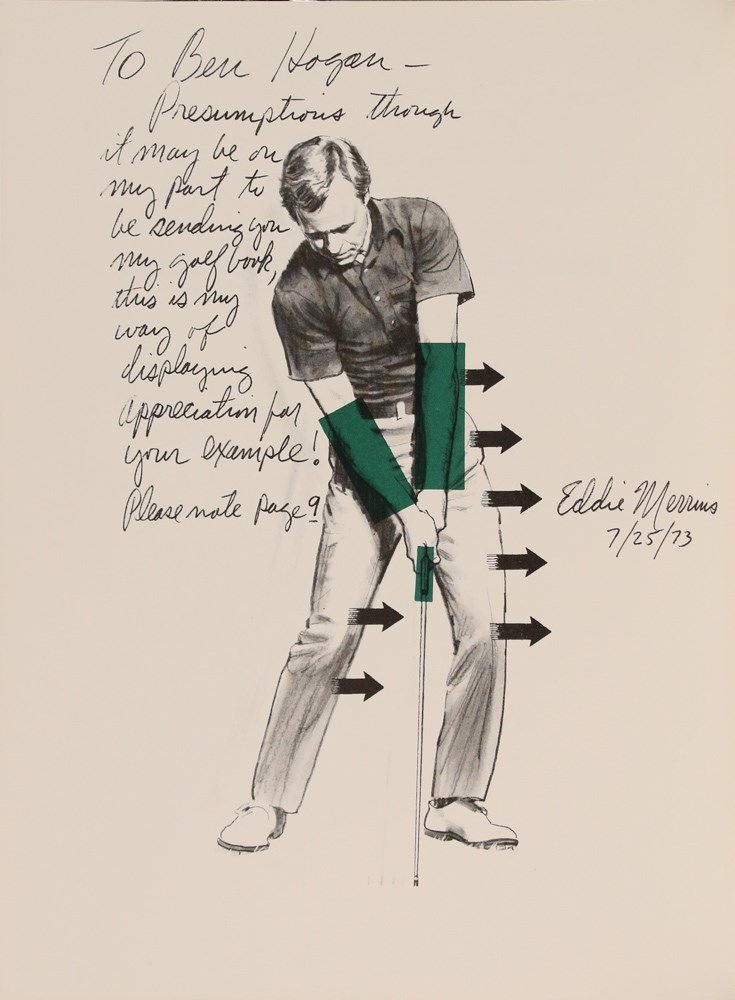 To Ben Hogan –
Presumptions though
it may be on
my part to
be sending you
my golf book,
this is my
way of
displaying
appreciation for
your example!
Please note page 9
Eddie Merrins
7/25/73